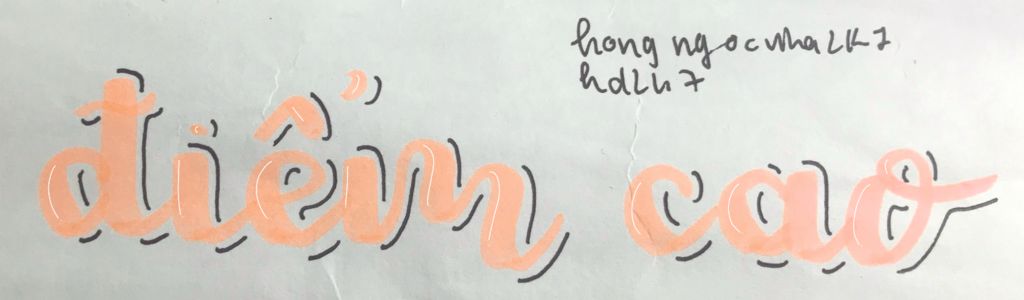 hong ngoc nha2k7
hd2k7
điểm cao